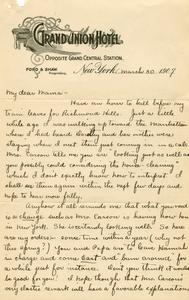 GRAND UNION HOTEL
OPPOSITE GRAND CENTRAL STATION.
FORD & SHAW
Proprietors.
New York, March 30 1907
My dear Mama—
Have an hour to kill before my
train leaves for Richmond Hill. Just a little
while ago I was walking up toward the Manhattan
when I had heard Dorothy and her mother were
staying when I met them just coming in a cab
Mrs. Carson tells me you are looking just as well as
you possibly could considering the house-cleaning
which I don't exactly know how to interpret. I
shall see them again within the next few days and
hope to hear more fully.
Anyhow it all reminds me that you need
a change such as Mrs Carson is having now here
in New York. She is certainly looking well. So have
my orders – some time within a year (why not
this spring?) you and Papa are to leave Hannah
in charge and come east and bum around for
a while just for instance. Don't you think it would
be good for you? I hope though that Mrs Carson's
very elastic remark will have a favorable explanation